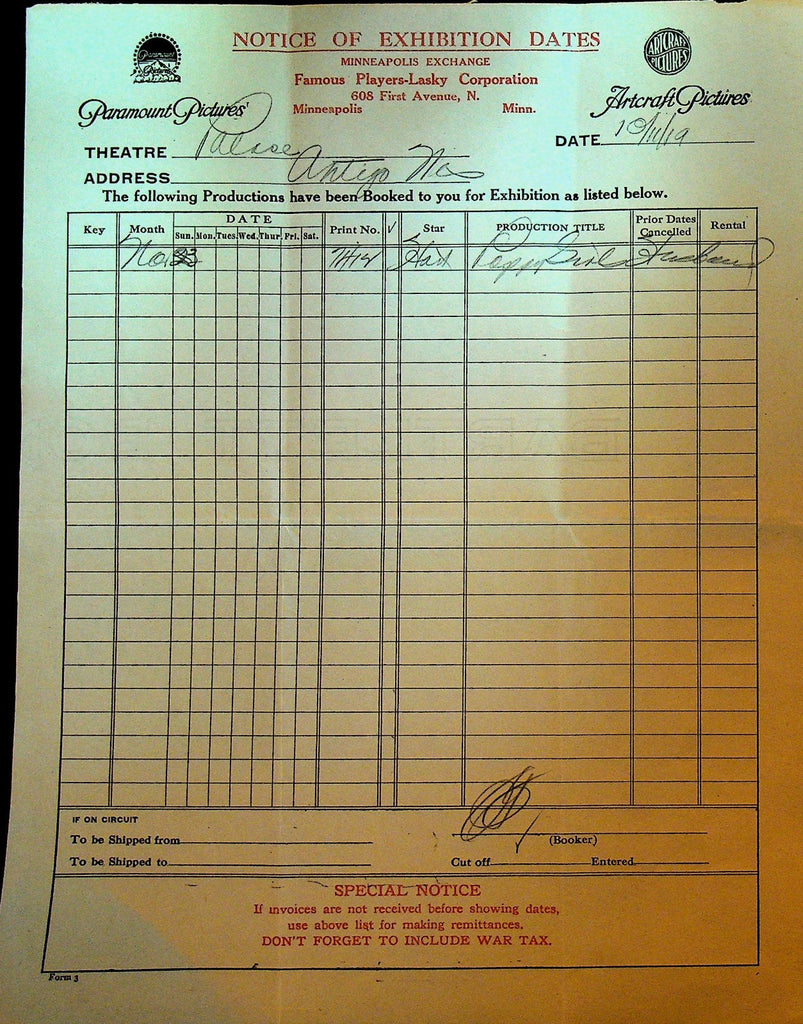 NOTICE OF EXHIBITION DATES
MINNEAPOLIS EXCHANGE
Famous Players-Lasky Corporation
608 First Avenue, N.
Minneapolis Minn.
Paramount Pictures
Paramount Pictures
ARTCRAFT PICTURES
Artcraft Pictures
DATE 10/11/19
THEATRE Palace
ADDRESS Antigo Wis
The following Productions have been Booked to you for Exhibition as listed below.
Key Month DATE Print No. √ Star PRODUCTION TITLE Prior Dates Cancelled Rental
Sun. Mon. Tues. Wed. Thur. Fri. Sat.
Nov 23 Hart Poppy Girls Husband
IF ON CIRCUIT
To be Shipped from
(Booker)
To be Shipped to Cut off Entered
SPECIAL NOTICE
If invoices are not received before showing dates,
use above list for making remittances.
DON'T FORGET TO INCLUDE WAR TAX.
Form 3